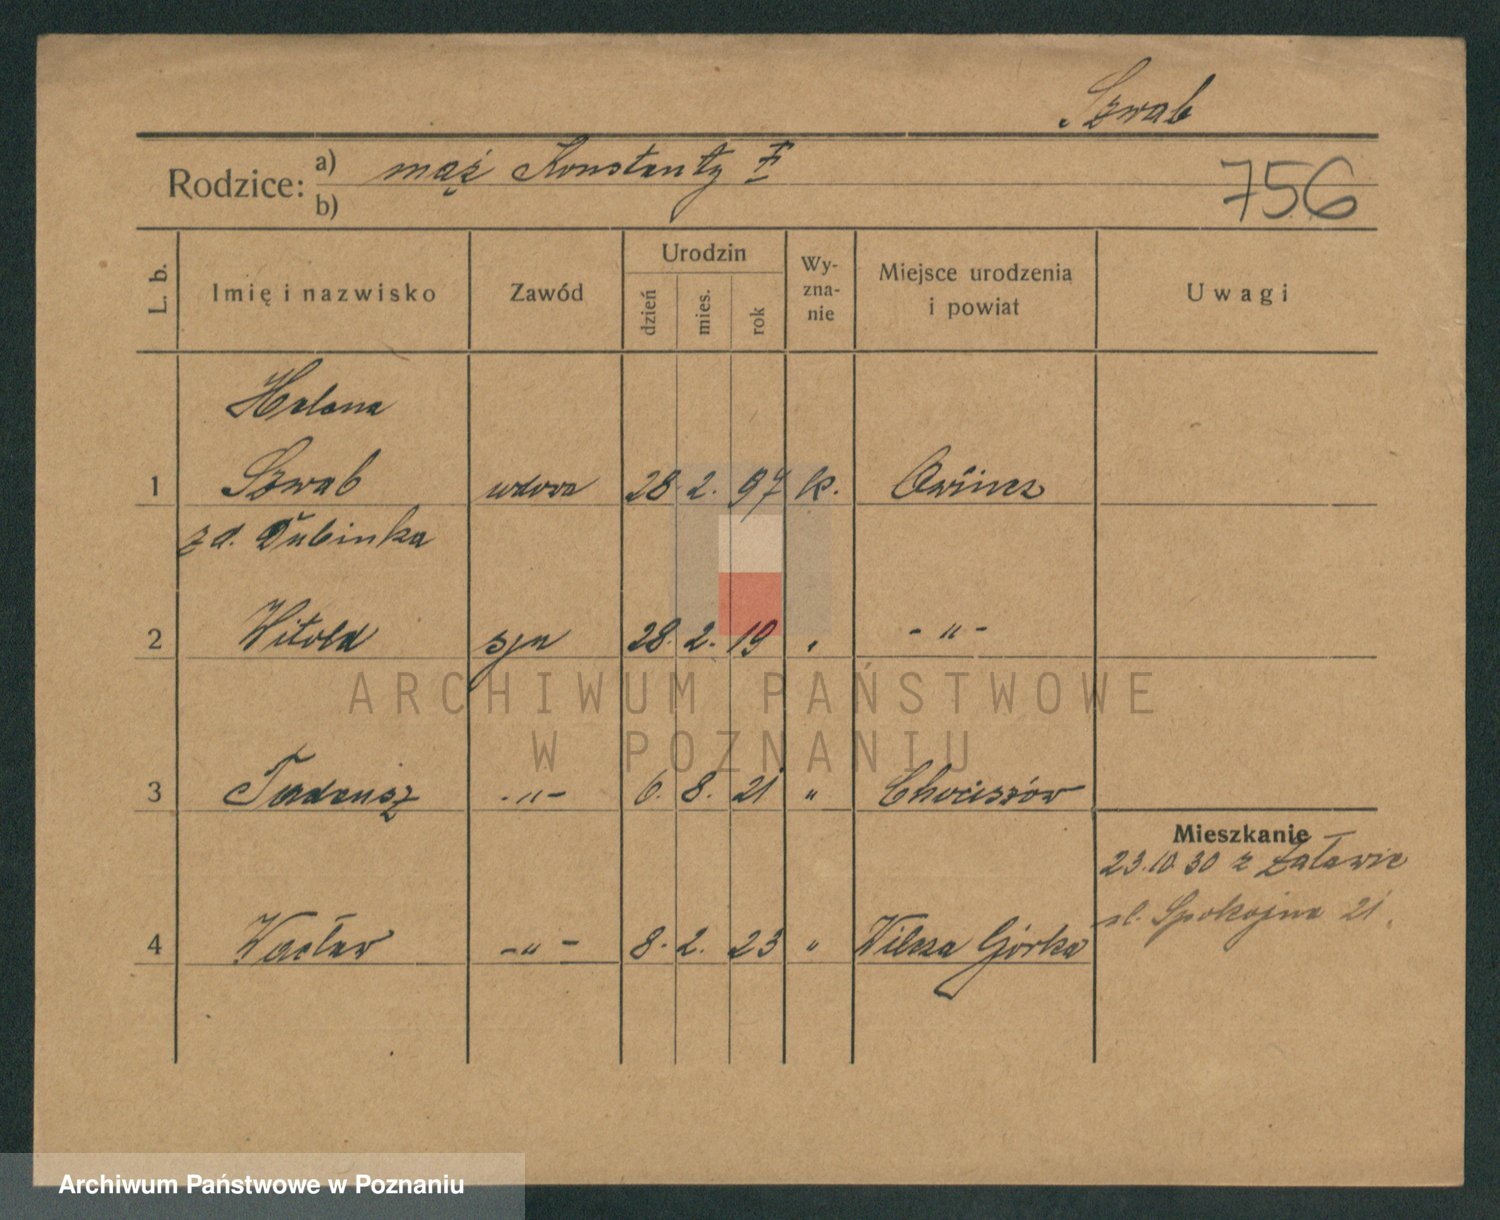 Szwab
Rodzice: a) mąż Konstanty †
b)
756
L. b.
Imię i nazwisko
Zawód
Urodzin
dzień
mies.
rok
Wy-
zna-
nie
Miejsce urodzenia
i powiat
Uwagi
Helena
1 Szwab wdowa 28 2. 97 k.
z d. Dubinka
2 Witold syn 28. 2. 19 " - " -
3 Tadeusz - " - 6. 8. 21 " Chociszów
Mieszkanie
23.10.30 z
ul. Spokojna 21.
4 Wacław - " - 8. 2. 23 " Wilcza Górka
ARCHIWUM PAŃSTWOWE
W POZNANIU
Archiwum Państwowe w Poznaniu